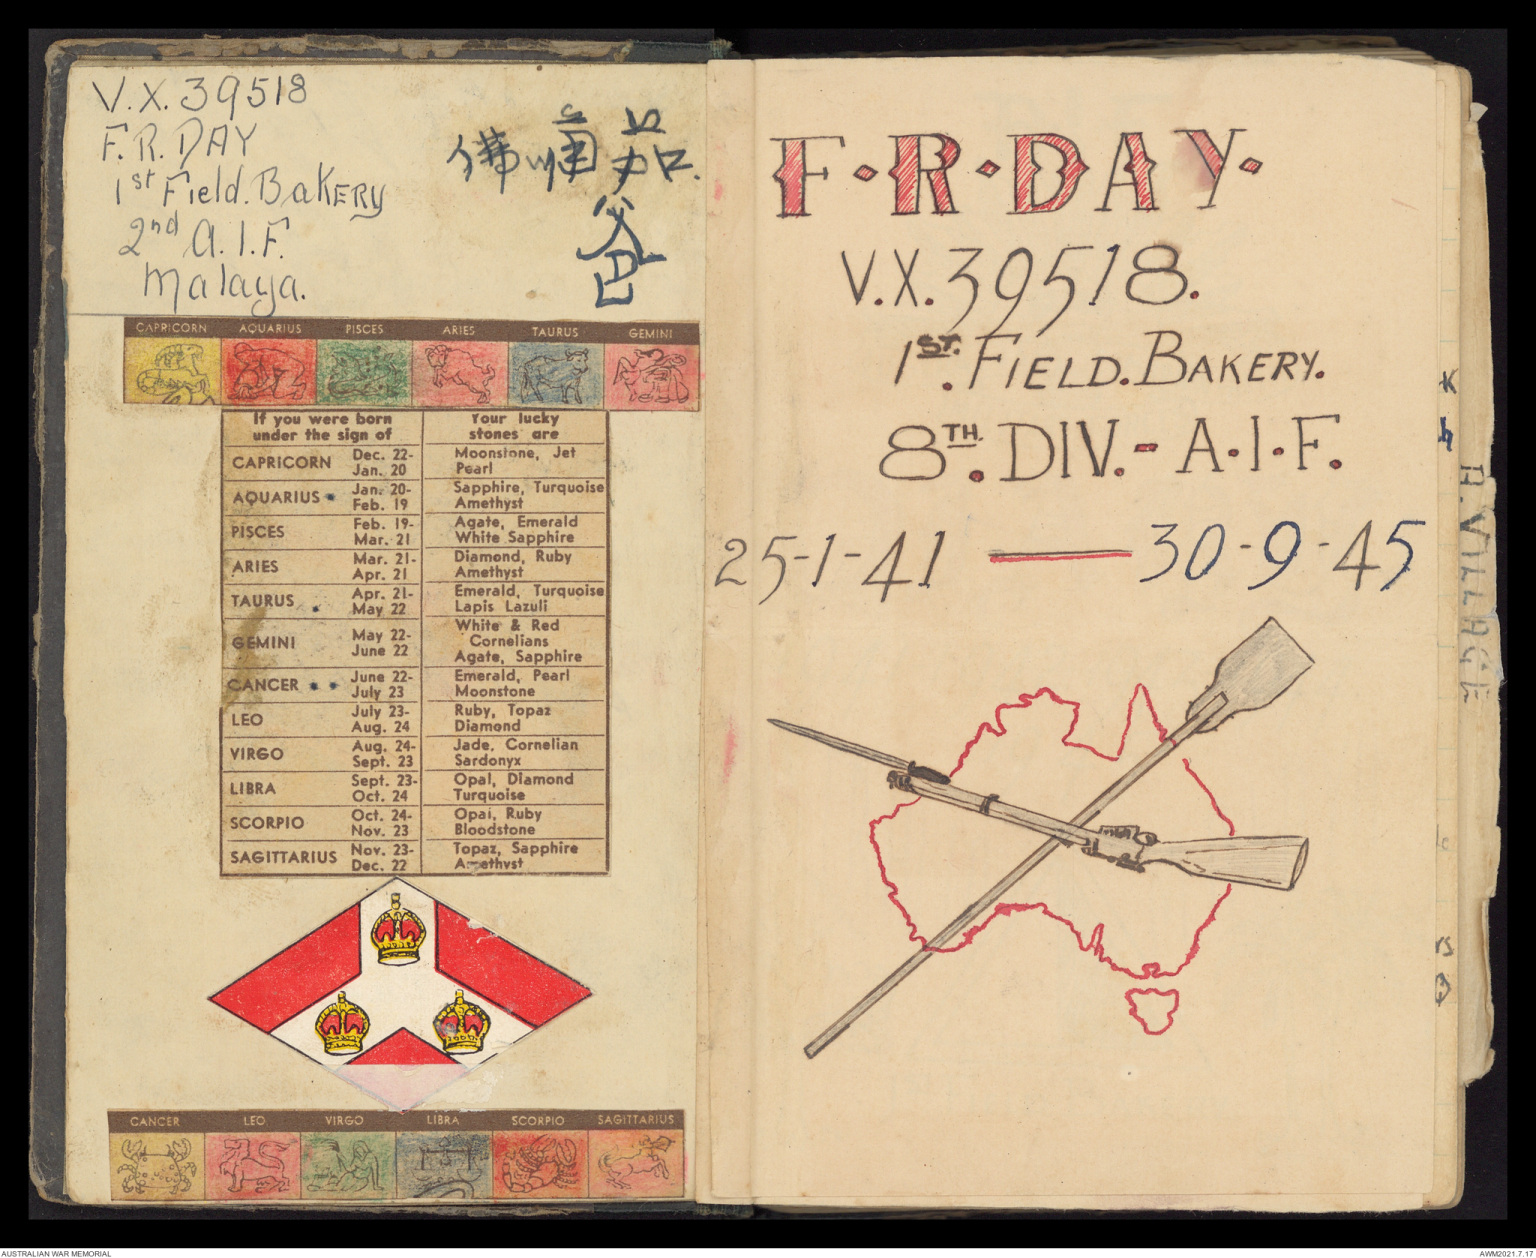 V.X. 39518
F. R. DAY
1st Field. BaKERy
2nd A. I. F.
Malaya.
佛
茄
爸
CAPRICORN AQUARIUS PISCES ARIES TAURUS GEMINI
If you were born under the sign of
Your lucky stones are
CAPRICORN Dec. 22- Jan. 20 Moonstone, Jet Pearl
AQUARIUS Jan. 20- Feb. 19 Sapphire, Turquoise Amethyst
PISCES Feb. 19- Mar. 21 Agate, Emerald White Sapphire
ARIES Mar. 21- Apr. 21 Diamond, Ruby Amethyst
TAURUS Apr. 21- May 22 Emerald, Turquoise Lapis Lazuli
GEMINI May 22- June 22 White & Red Cornelians Agate, Sapphire
CANCER June 22- July 23 Emerald, Pearl Moonstone
LEO July 23- Aug. 24 Ruby, Topaz Diamond
VIRGO Aug. 24- Sept. 23 Jade, Cornelian Sardonyx
LIBRA Sept. 23- Oct. 24 Opal, Diamond Turquoise
SCORPIO Oct. 24- Nov. 23 Opal, Ruby Bloodstone
SAGITTARIUS Nov. 23- Dec. 22 Topaz, Sapphire Amethyst
CANCER LEO VIRGO LIBRA SCORPIO SAGITTARIUS
F·R·DAY·
V.X. 39518.
1ST. FIELD. BAKERY.
8TH. DIV.- A·I·F.
25-1-41 — 30-9-45
K
h
A. VILLAGE
AUSTRALIAN WAR MEMORIAL
AWM2021.7.17